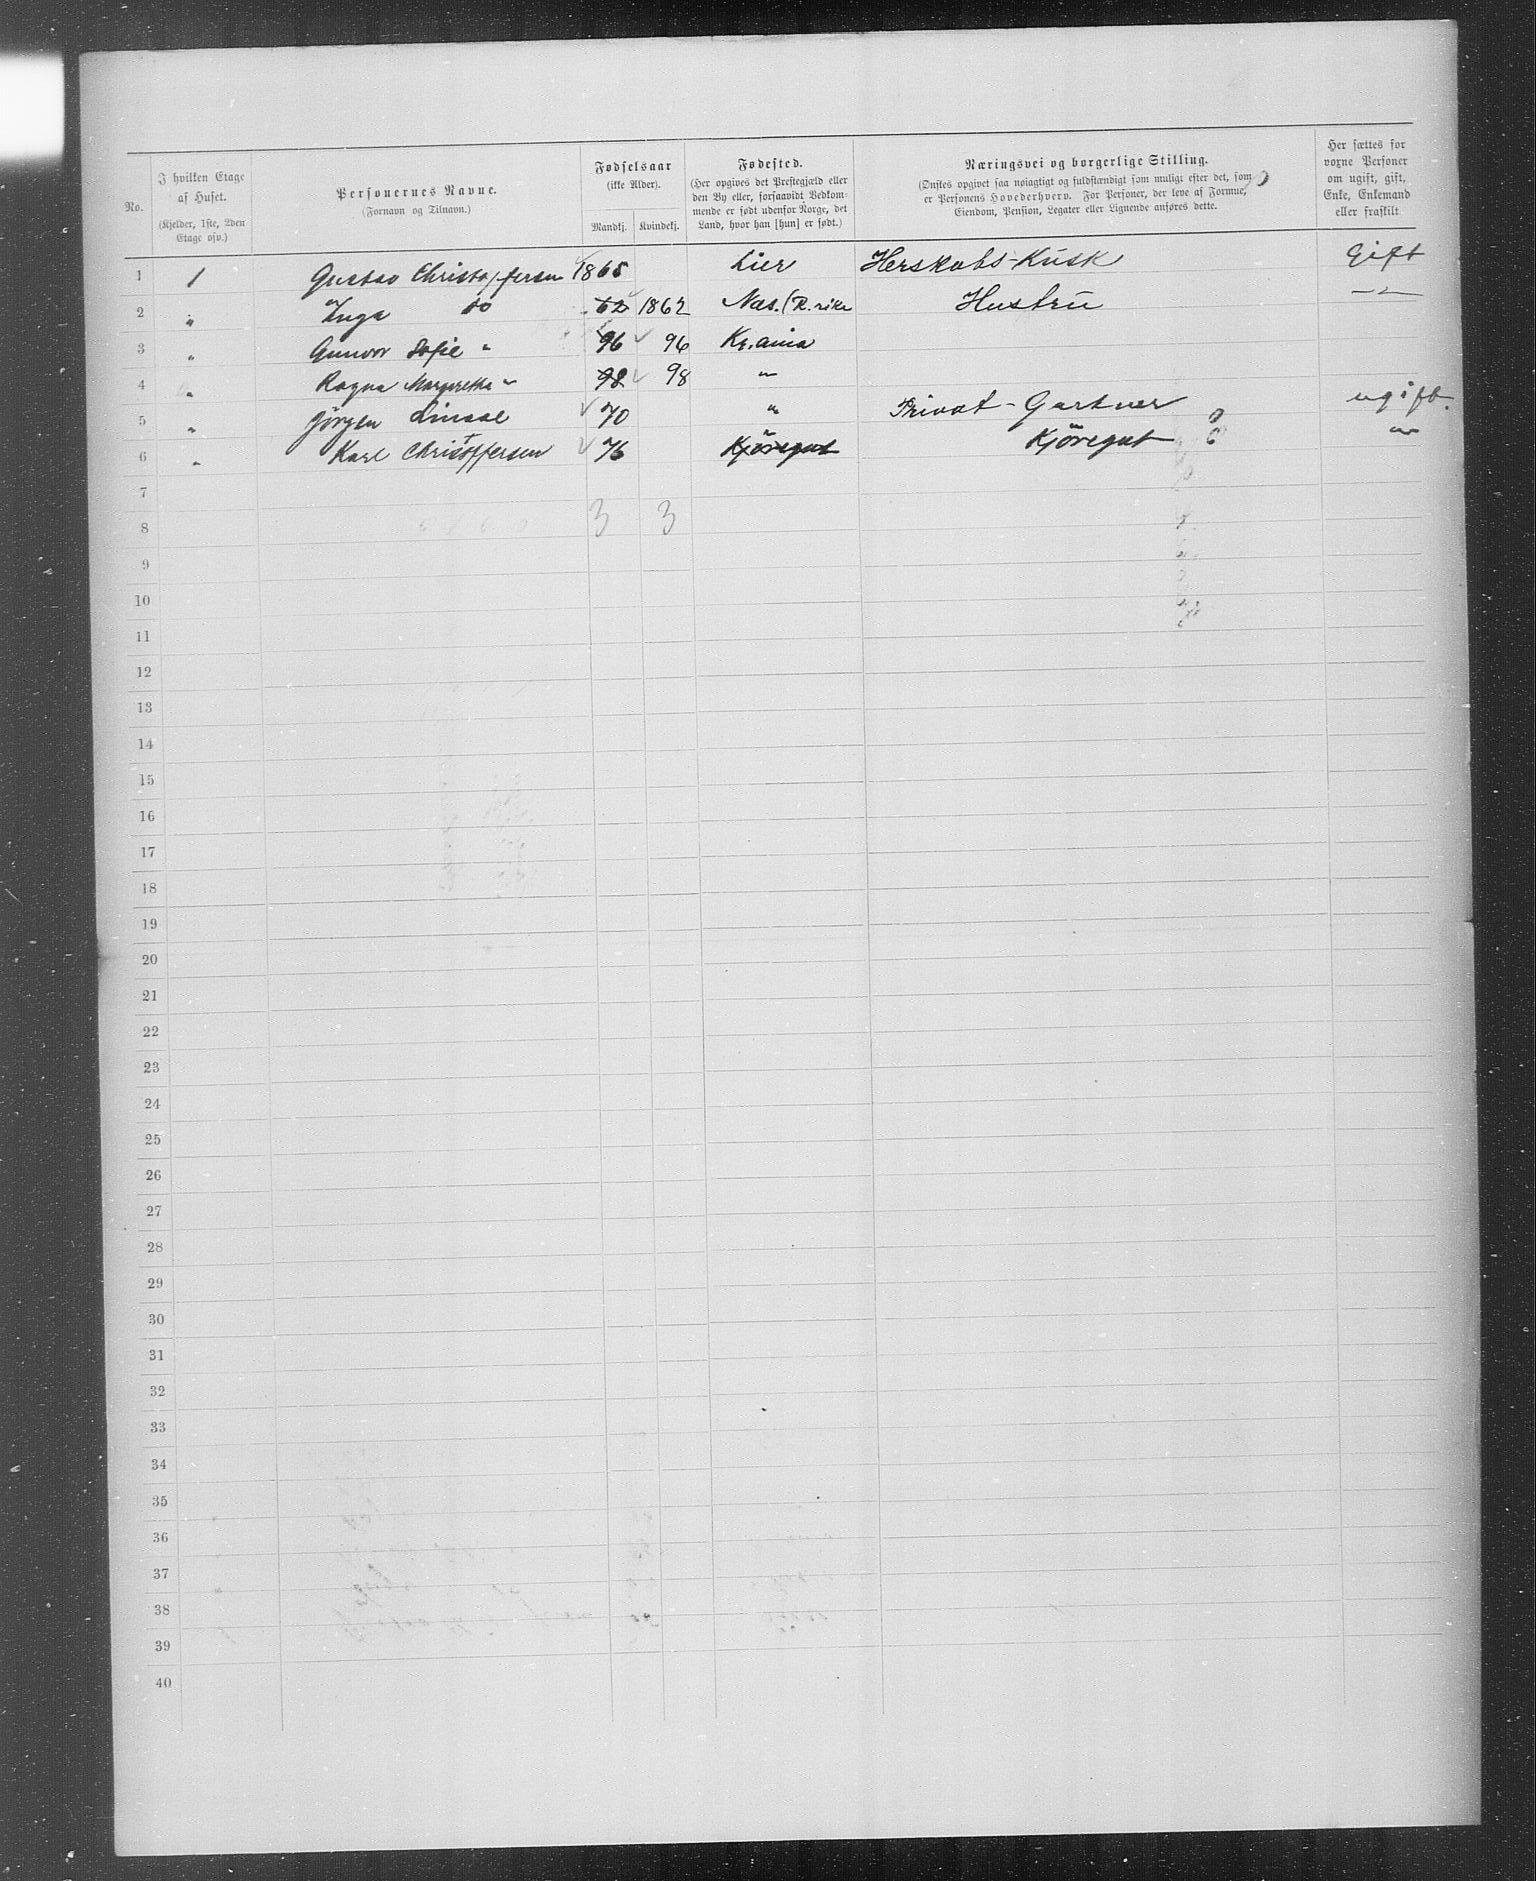 No.
I hvilken Etage af Huset.
(Kjelder, 1ste, 2den Etage osv.)
Personernes Navne.
(Fornavn og Tilnavn.)
Fødselsaar
(ikke Alder).
Mandkj. Kvindekj.
Fødested.
(Her opgives det Prestegjæld eller den By eller, forsaavidt Vedkommende er født udenfor Norge, det Land, hvor han [hun] er født.)
Næringsvei og borgerlige Stilling.
(Ønskes opgivet saa nøiagtigt og fuldstændigt som muligt efter det, som er Personens Hovederhverv. For Personer, der leve af Formue, Eiendom, Pension, Legater eller Lignende anføres dette.
Her sættes for voxne Personer om ugift, gift, Enke, Enkemand eller fraskilt
1 1 Gustav Christoffersen 1865 Lier Herskabs-Kusk Gift
2 " Inga do 62 1862 Næs. (R.rike Hustru —"—
3 " Gunvor Sofie " 96 96 Kr.ania
4 " Ragna Margretha " 98 98 "
5 " Jörgen 70 " Privat-Gartner ugift.
6 " Karl Christoffersen 76 " Kjöregut Kjöregut "
7
8 3 3
9
10
11
12
13
14
15
16
17
18
19
20
21
22
23
24
25
26
27
28
29
30
31
32
33
34
35
36
37
38
39
40